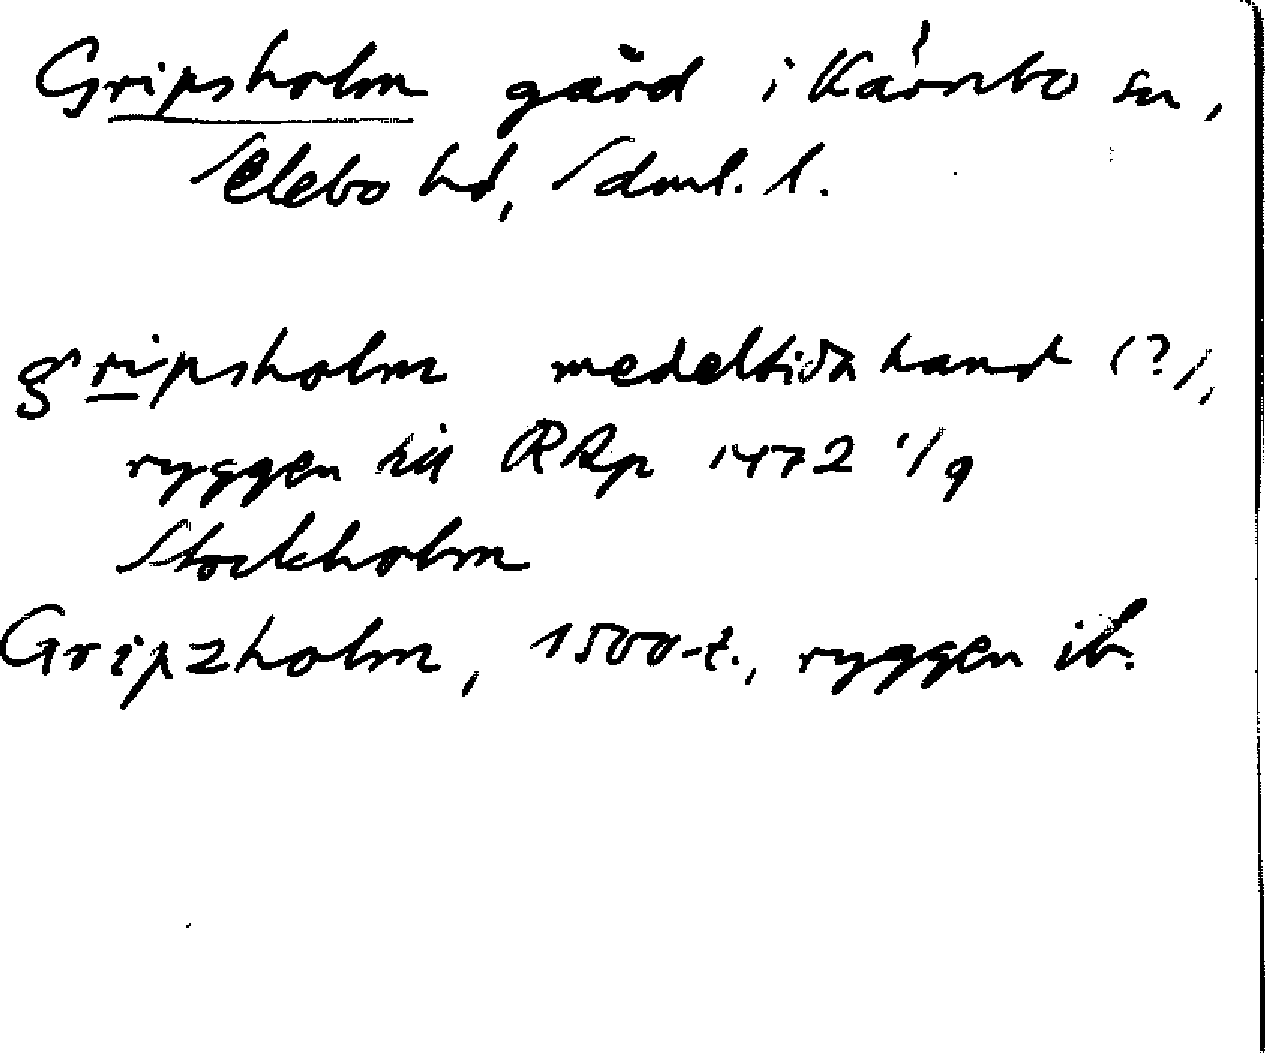 Gripsholm gård i Kärnbo sn,
Selebo hd, Sdml. l.
gripsholm medeltida hand (?),
ryggen till RAp 1472 1/9
Stockholm
Gripzholm, 1500-t., ryggen ib.